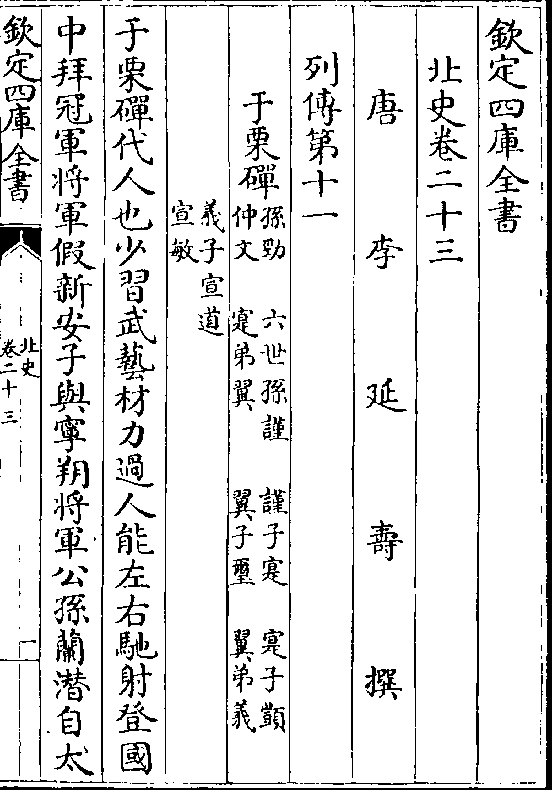 欽定四庫全書
北史卷二十三
唐李延壽撰
列傳第十一
于栗磾孫勁 六世孫謹 謹子寔 寔子顗
仲文 寔弟翼 翼子璽 翼弟義
義子宣道
宣敏
于栗磾代人也少習武藝材力過人能左右馳射登國
中拜冠軍將軍假新安子與寧朔將軍公孫蘭潛自太
欽定四庫全書
北史
卷二十三
一